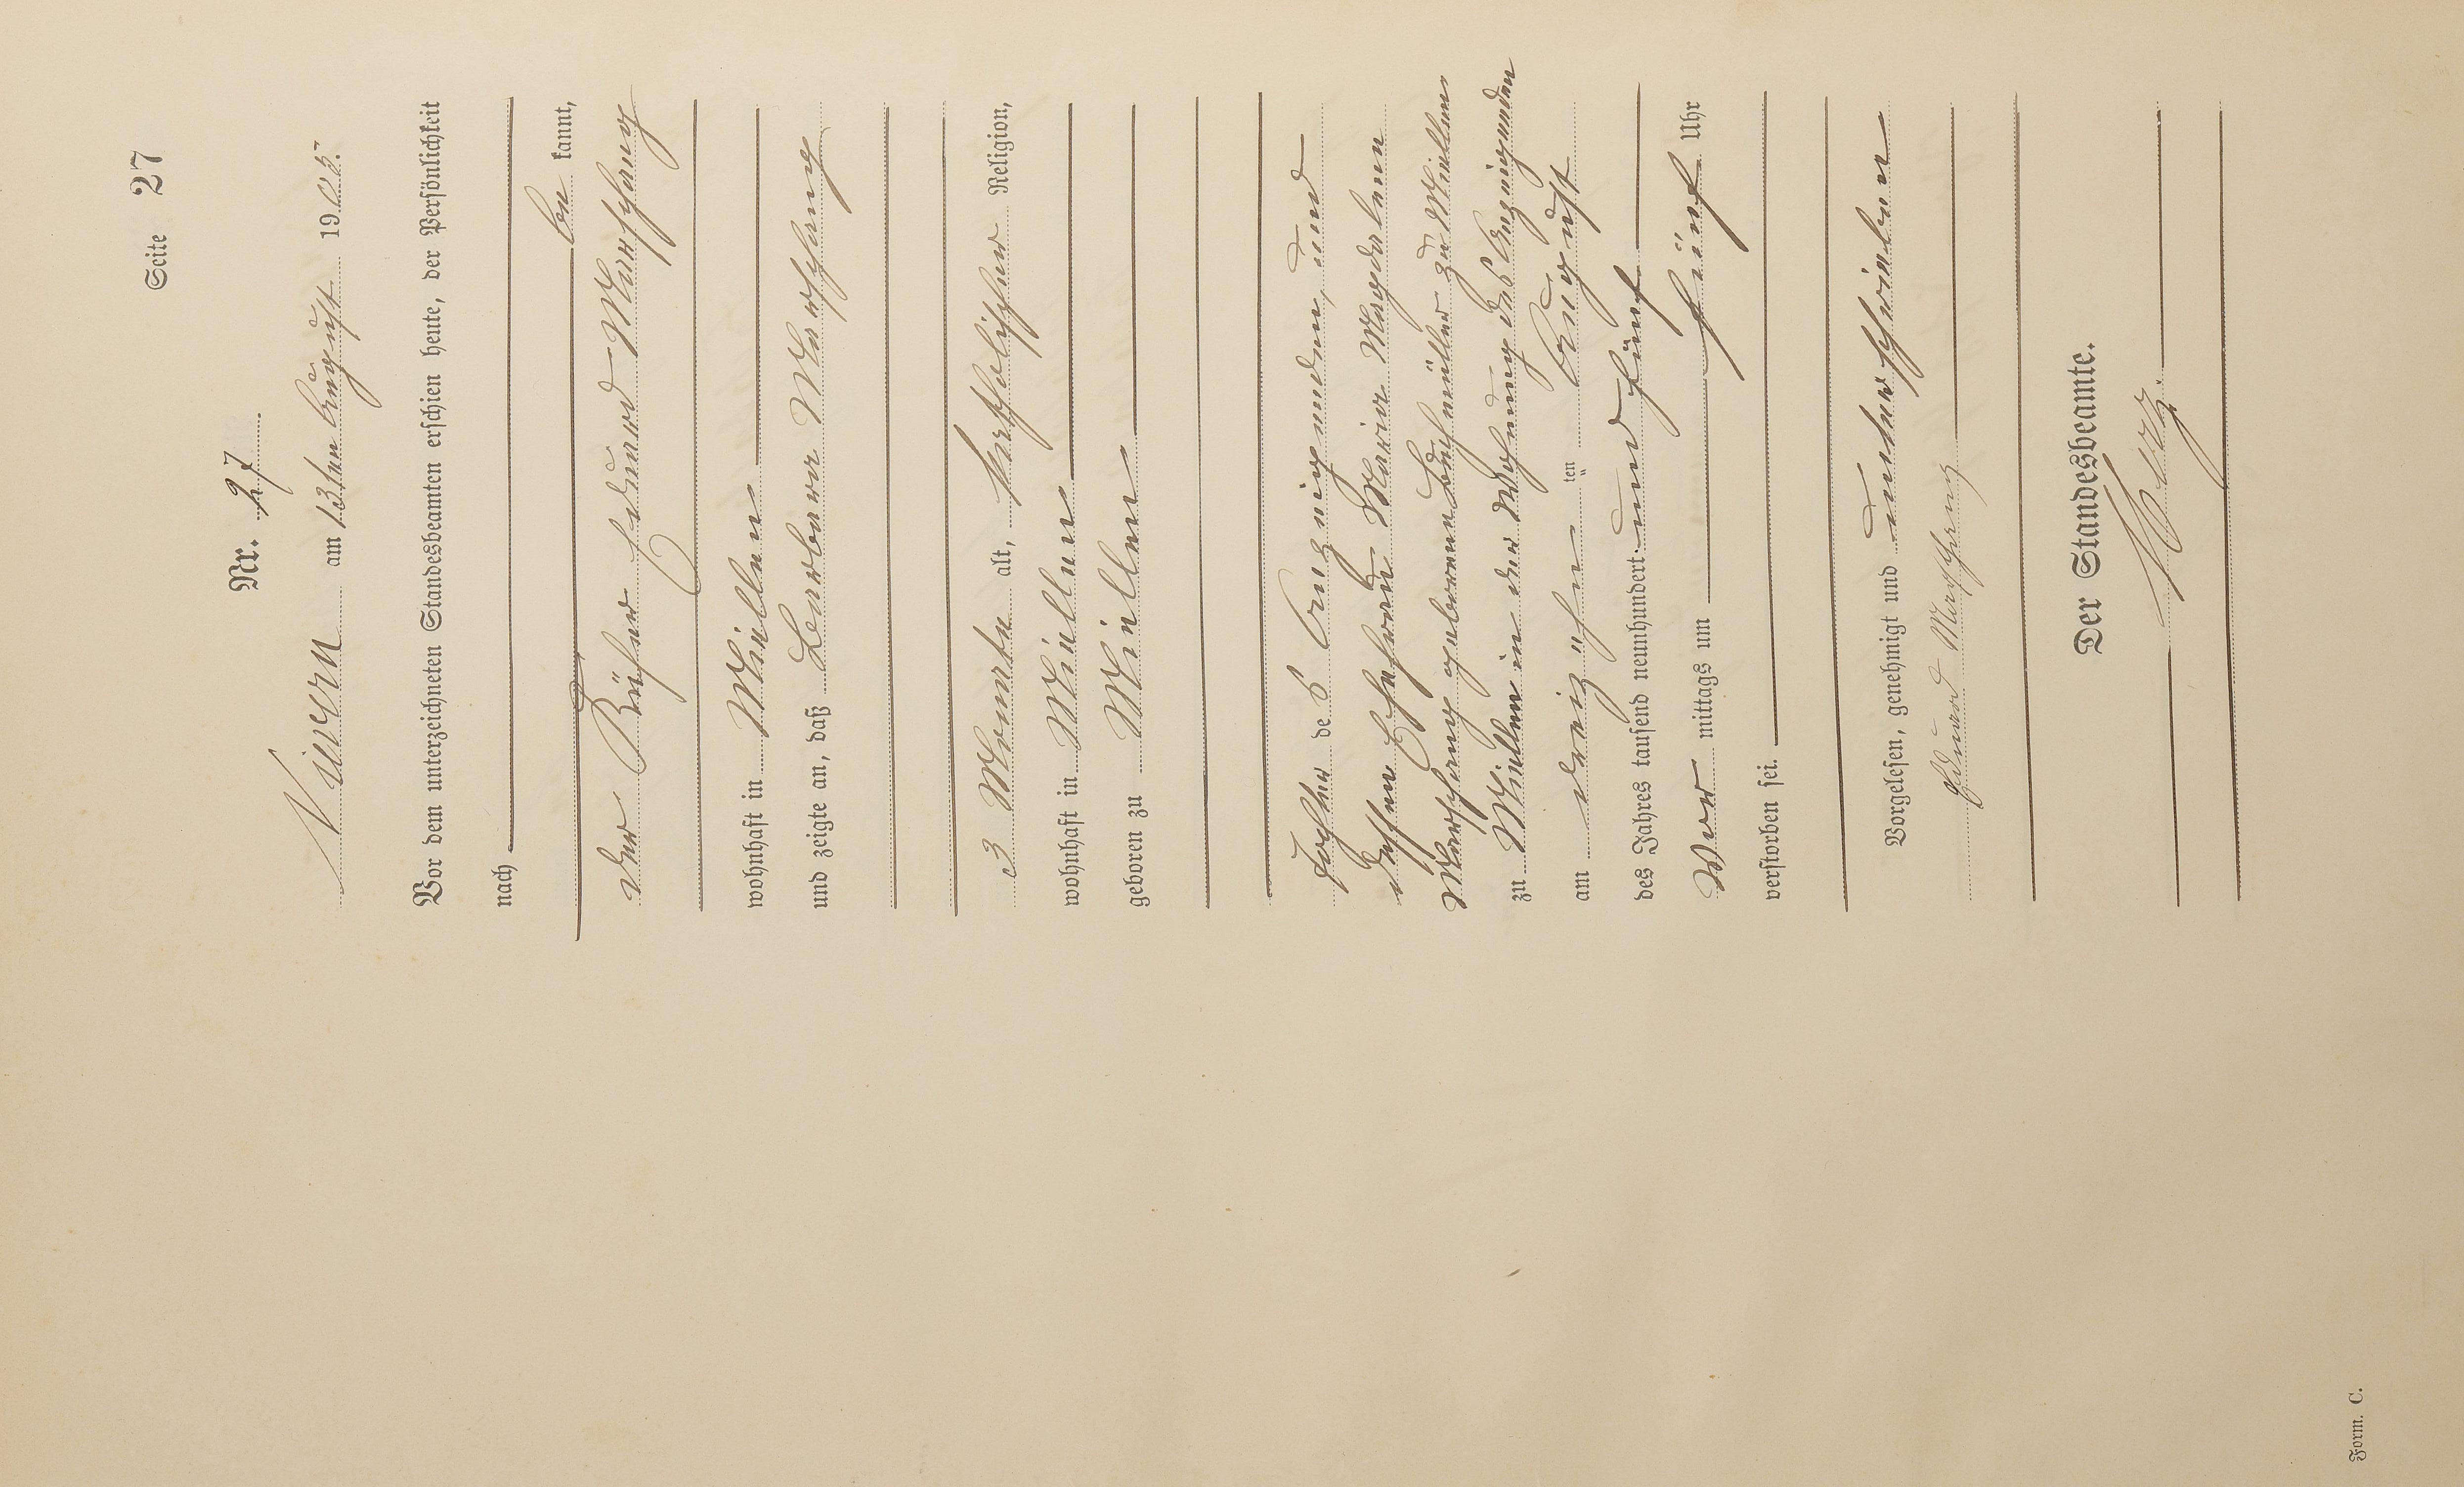 Seite 27
Nr. 27
am 13ten August 1905.
Vor dem unterzeichneten Standesbeamten erschien heute, der Persönlichkeit
nach
be kannt,
der Eduard Marschang
wohnhaft in Müllen
und zeigte an, daß Barbara Marschang
3 Monate alt, katholischer Religion,
wohnhaft in Müllen
geboren zu Müllen
Tochter des Anzeigenden, und
dessen Ehefrau Maria Magdalena
Marschang geborene Bußmüller zu Müllen
zu Müllen in der Wohnung des Anzeigenden
am dreizehn ten August
des Jahres tausend neunhundert und fünf
Vor mittags um fünf Uhr
verstorben sei.
Vorgelesen, genehmigt und unterschrieben
Eduard Marschang
Der Standesbeamte.
Form. C.